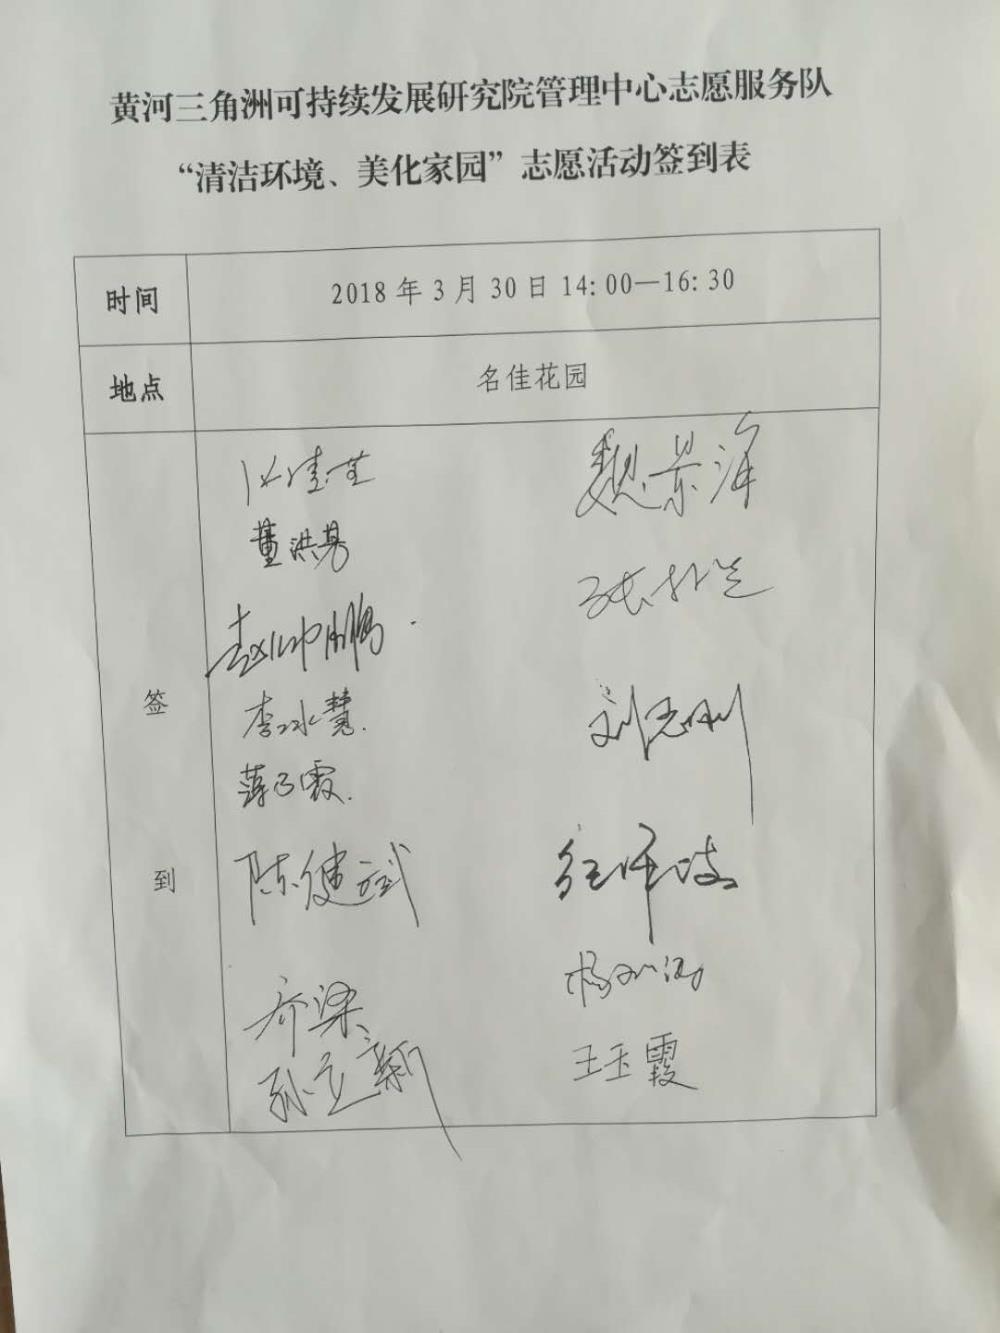 黄河三角洲可持续发展研究院管理中心志愿服务队
“清洁环境、美化家园”志愿活动签到表
时间 2018年3月30日14:00—16:30
地点 名佳花园
签到
魏景海
董洪
赵帅鹏
李冰慧
刘志刚
薛霞
陈健斌
乔梁
杨
孙立新
王玉霞